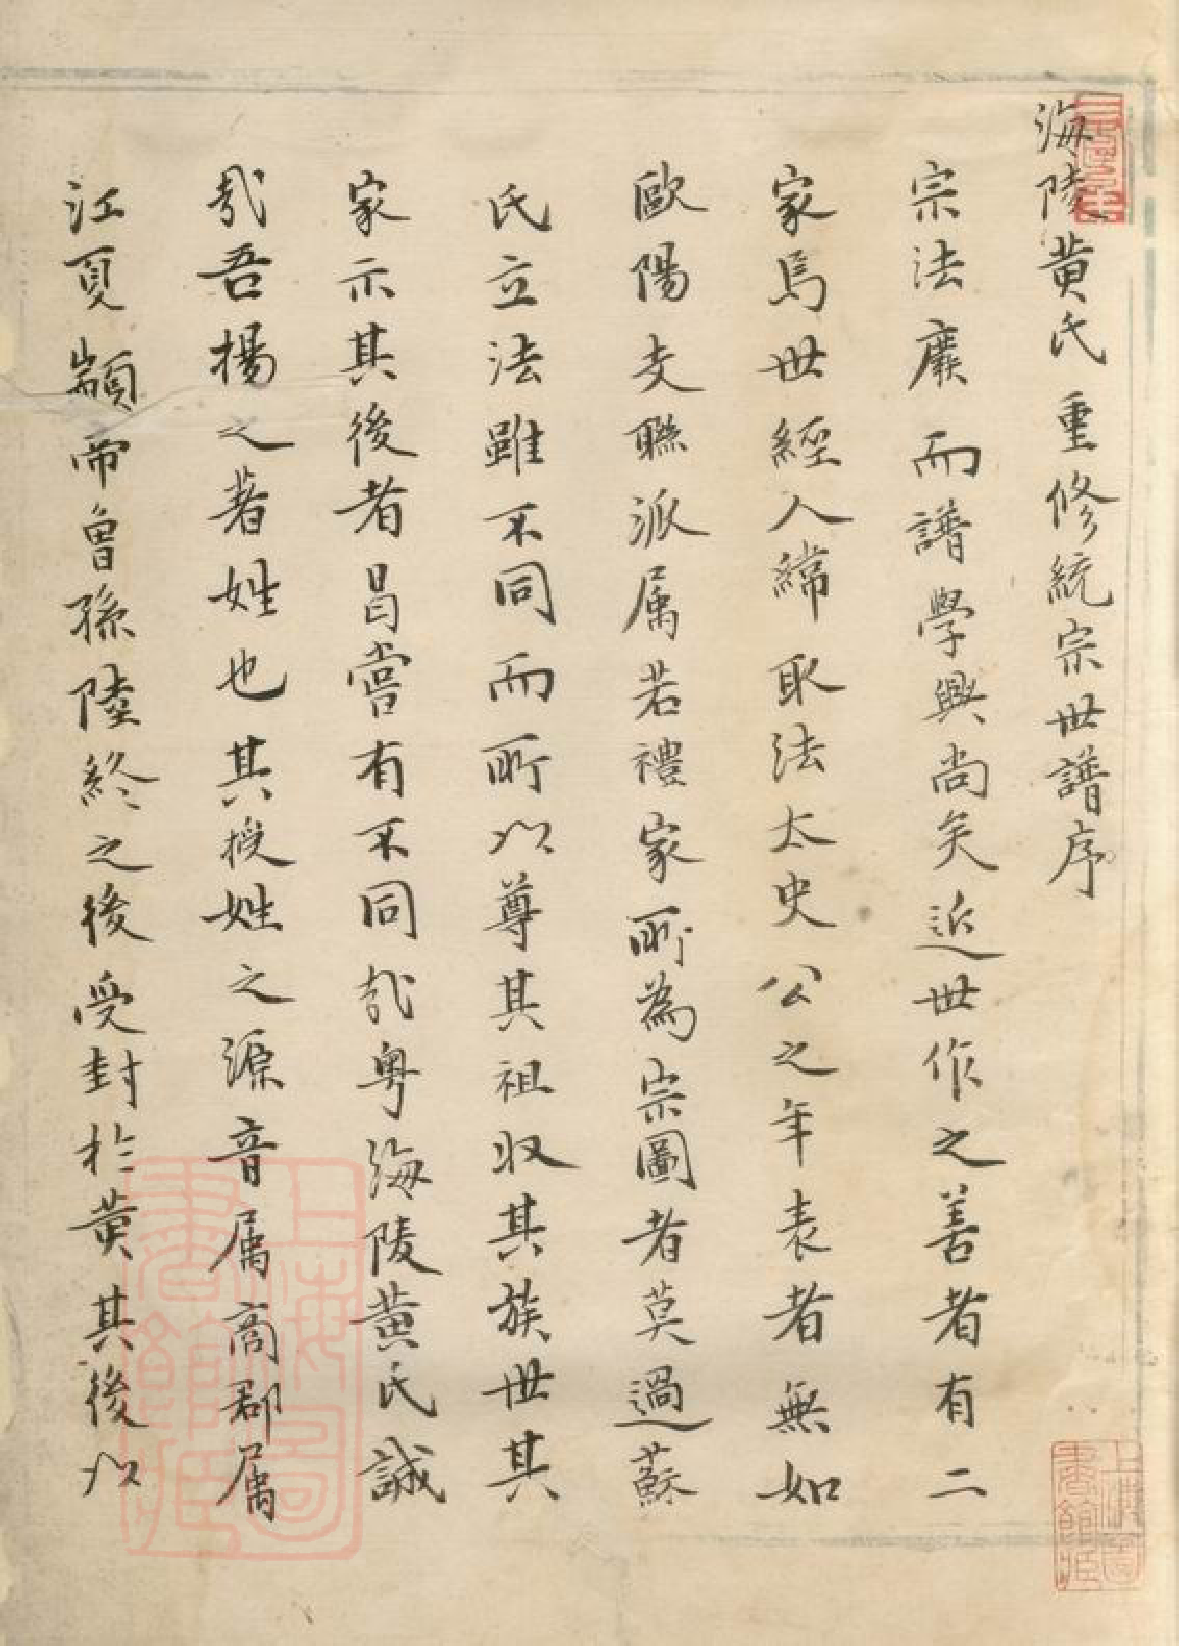 海陵黄氏重修統宗世譜序
宗法廢而譜學興尚矣近世作之善者有二
家焉世經人緯取法太史公之年表者無如
歐陽支聯派属若禮家所為宗圖者莫過蘇
氏立法雖不同而所以尊其祖収其族世其
家示其後者曷嘗有不同哉粤海陵黄氏誠
哉吾楊之著姓也其授姓之源音属商郡属
江夏顓帝曾孫陸終之後受封於黄其後以
上海圖書館藏
上海圖書館藏